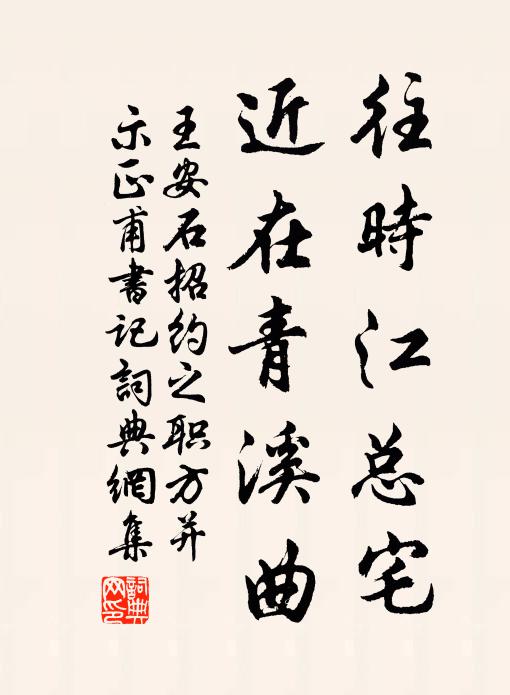 往時江总宅
近在青溪曲
王安石招约之职方并
示正甫書记詞典網集
詞典网印